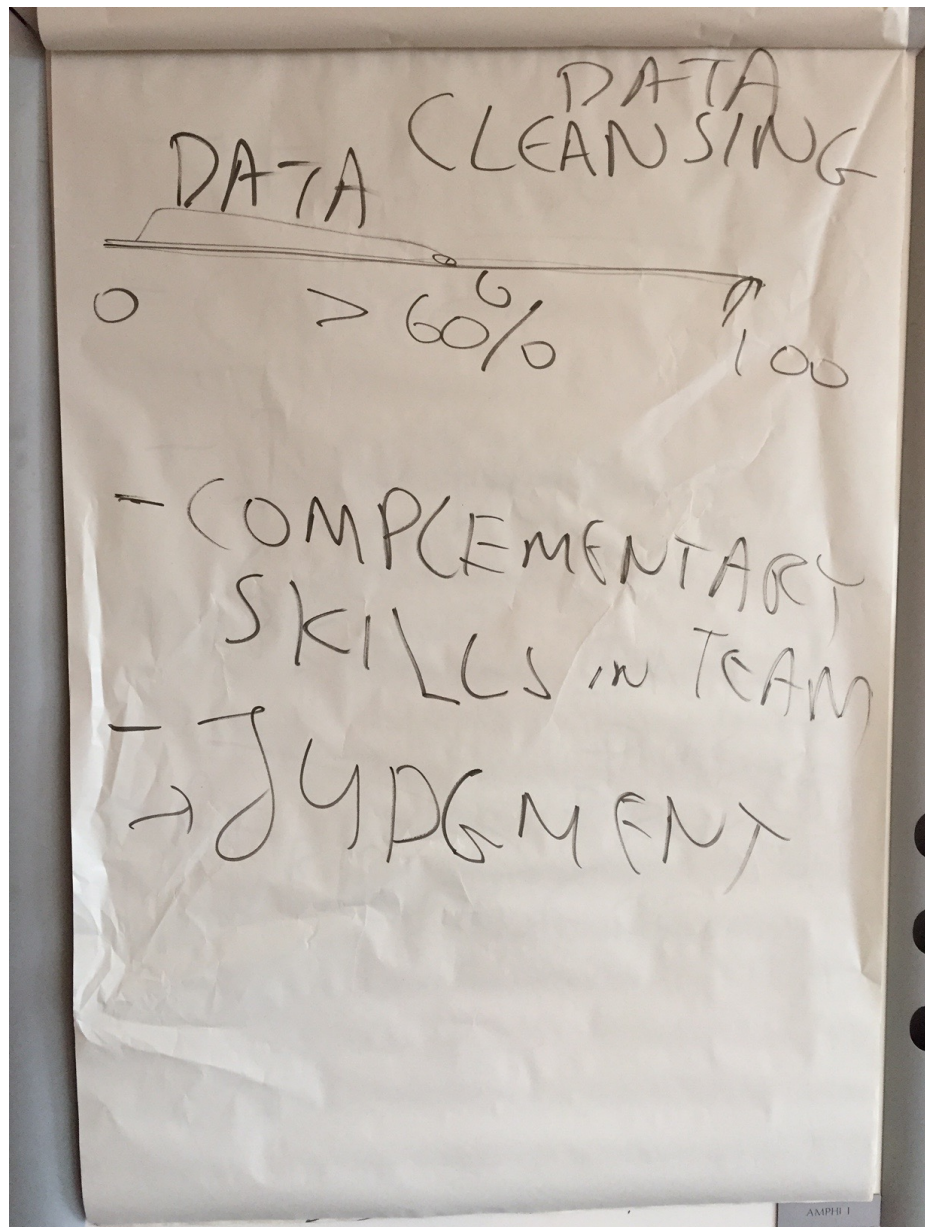 DATA
CLEANSING
DATA
0 > 60% 100
- COMPLEMENTARY
SKILLS IN TEAM
- JUDGMENT
AMPHI 1